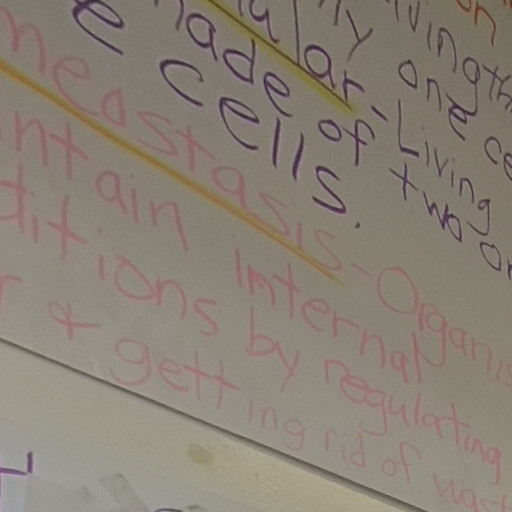 on
ly
livingth
ular- Living
one ce
e made of two or
cells.
meostasis-Organis
ntain internal
ditions by regulating
r & getting rid of wast